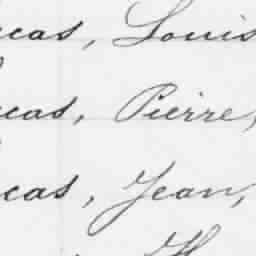 cas, Louis
cas, Pierre,
cas, Jean,